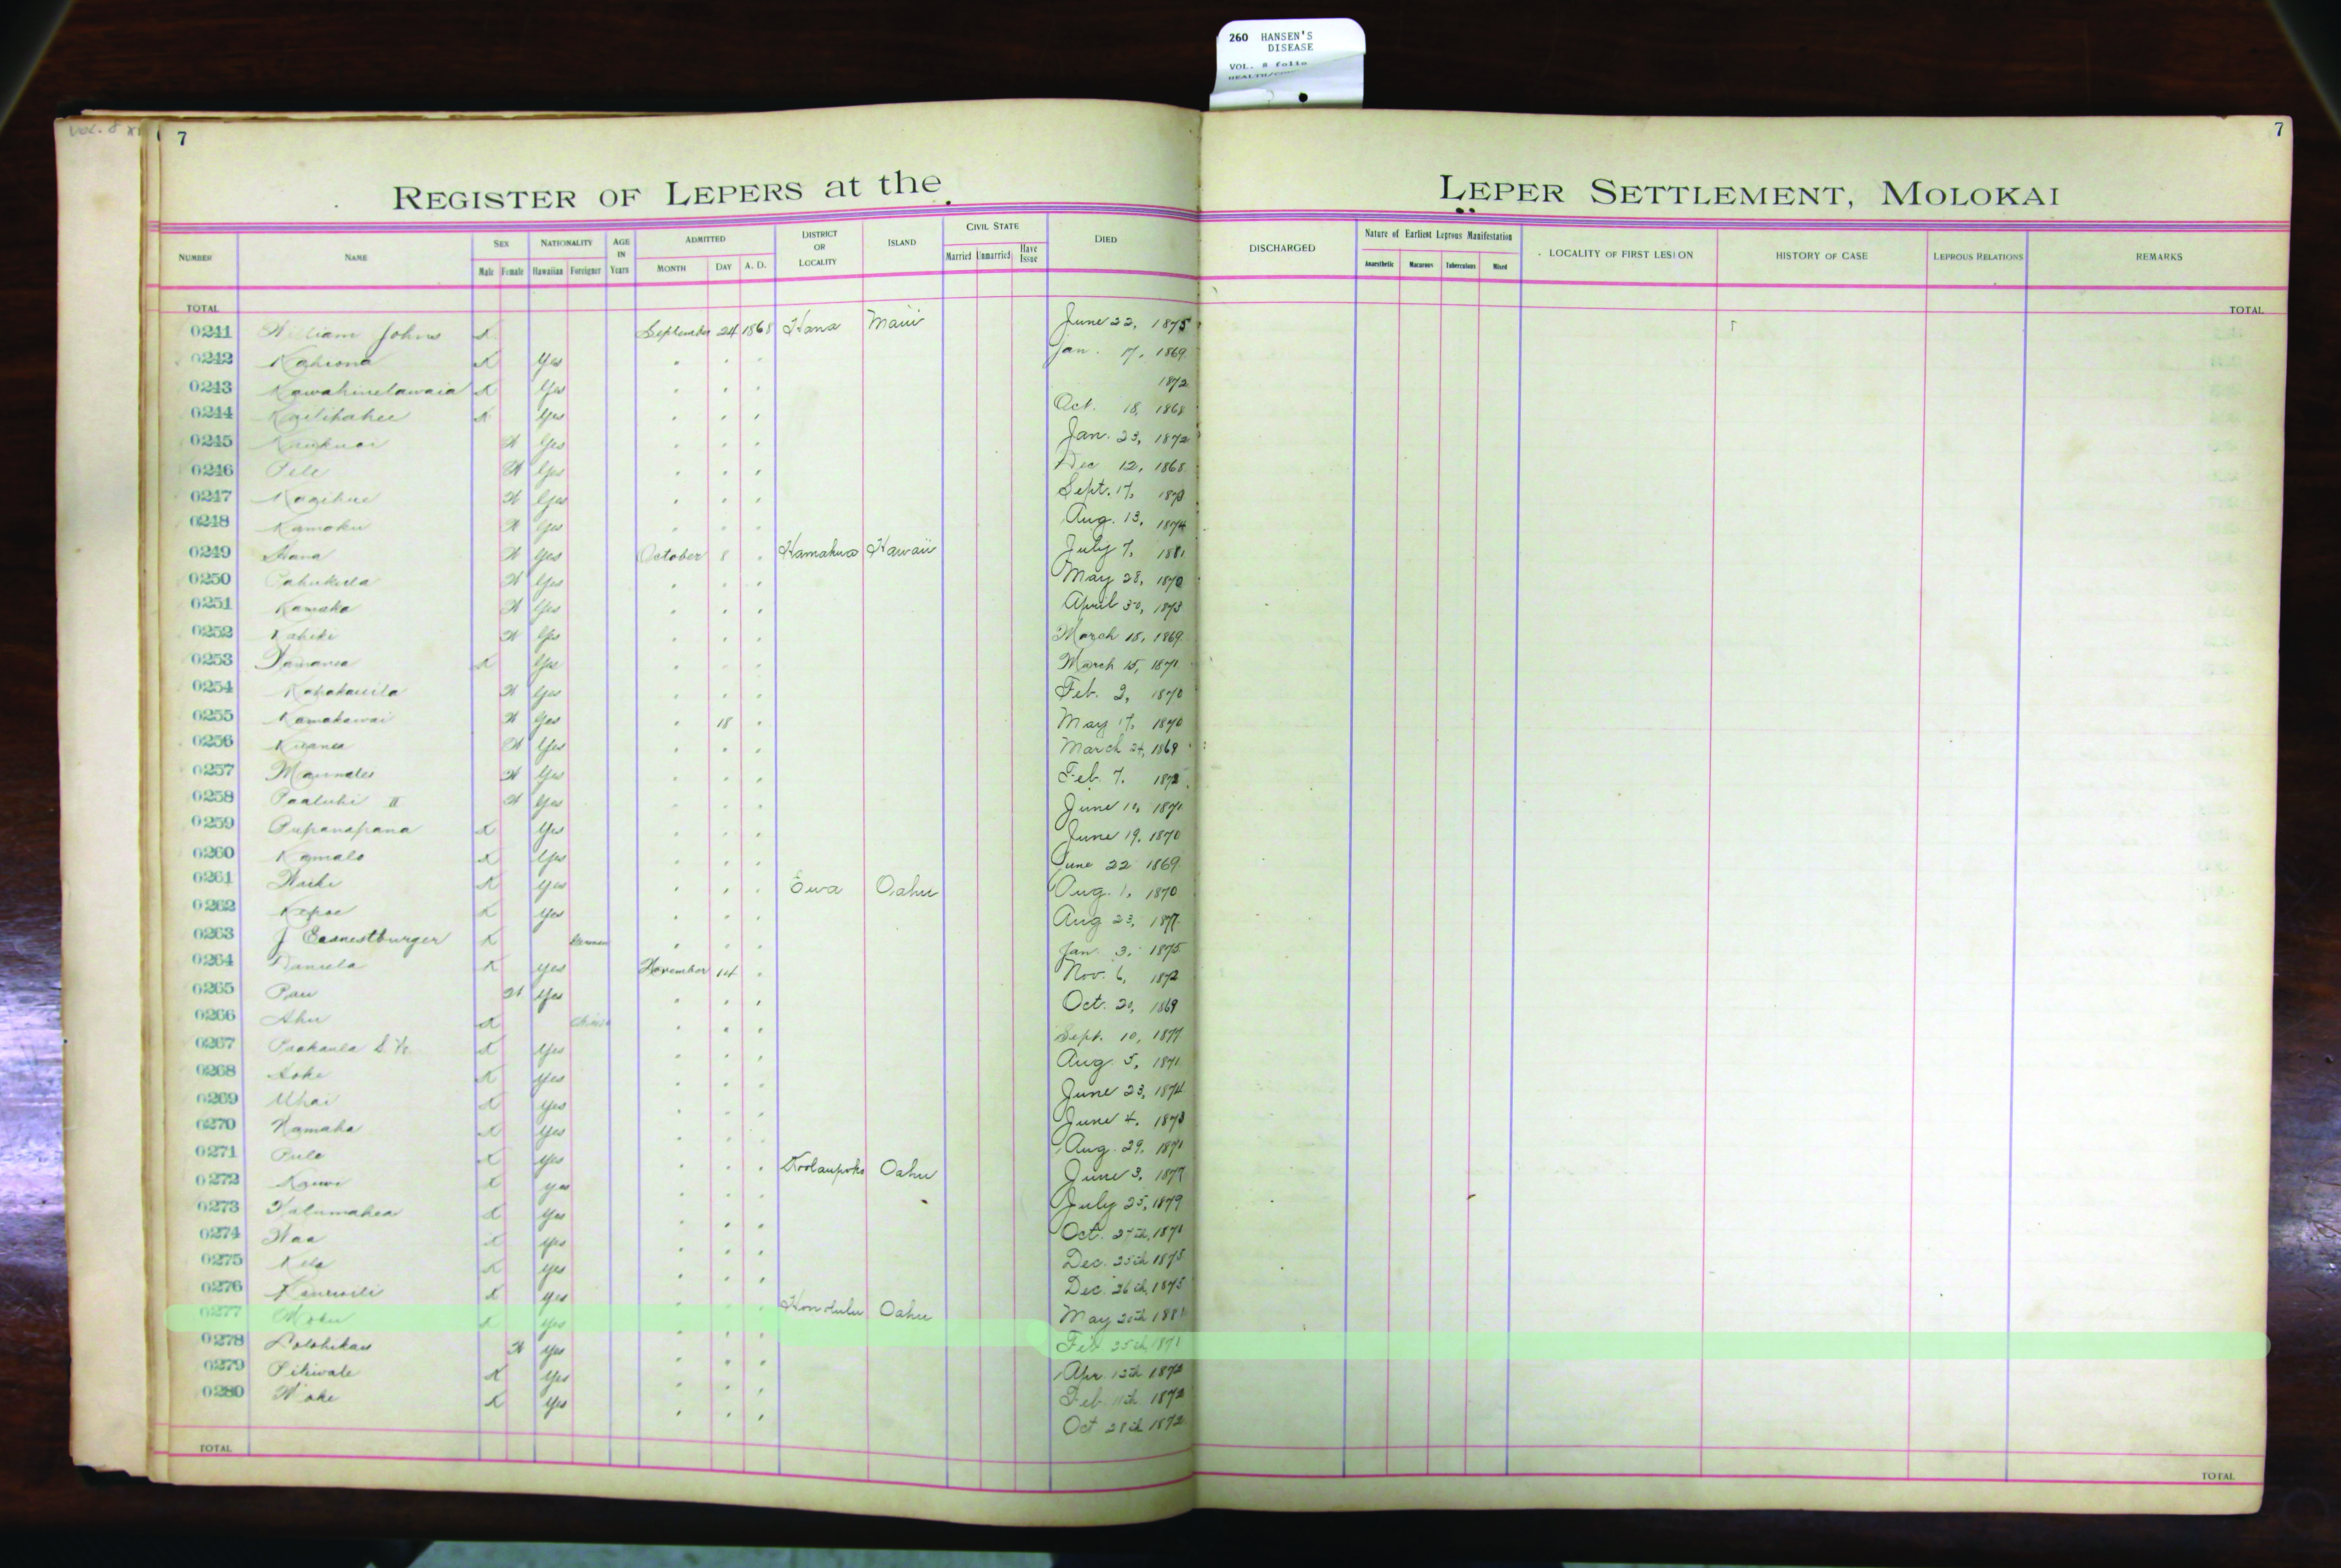 260 HANSEN'S
DISEASE
VOL. 8 folio
VOL. 8
7
7
REGISTER OF LEPERS at the
LEPER SETTLEMENT, MOLOKAI
NUMBER NAME SEX Male Female NATIONALITY Hawaiian Foreigner AGE IN Years ADMITTED MONTH DAY A. D. DISTRICT OR LOCALITY ISLAND CIVIL STATE Married Unmarried Have Issue DIED DISCHARGED Nature of Earliest Leprous Manifestation Anaesthetic Macurous Tuberculous Mixed LOCALITY OF FIRST LESION HISTORY OF CASE LEPROUS RELATIONS REMARKS
TOTAL TOTAL
0241 William Johns X September 24 1868 Hana Maui June 22, 1875
0242 X Yes " " " Jan. 17, 1869
0243 Kawahinelawaia X Yes " " " 1872
0244 X Yes " " " Oct. 18, 1868
0245 X Yes " " " Jan. 23, 1872
0246 Pele X Yes " " " Dec 12, 1868
0247 X Yes " " " Sept. 17, 1873
0248 Kamoku X Yes " " " Aug. 13, 1874
0249 Hana X Yes October 8 " Hamakua Hawaii July 7, 1881
0250 X Yes " " " May 28, 1870
0251 Kamaka X Yes " " " April 30, 1873
0252 X Yes " " " March 18, 1869
0253 X Yes " " " March 15, 1871
0254 Kapakauila X Yes " " " Feb. 2, 1870
0255 Kamakawai X Yes " 18 " May 17, 1870
0256 X Yes " " " March 24, 1869
0257 X Yes " " " Feb. 7, 1872
0258 Paaluhi II X Yes " " " June 10, 1871
0259 Pupanapana X Yes " " " June 19, 1870
0260 Kamalo X Yes " " " June 22 1869
0261 X Yes " " " Ewa Oahu Aug. 1, 1870
0262 Kepoe X Yes " " " Aug 23, 1877
0263 J Earnestburger X German " " " Jan. 3, 1875
0264 Daniela X Yes November 14 " Nov. 6, 1872
0265 Pau X Yes " " " Oct. 20, 1869
0266 Ahu X Chinese " " " Sept. 10, 1877
0267 X Yes " " " Aug. 5, 1871
0268 X Yes " " " June 23, 1874
0269 Uhai X Yes " " " June 4, 1873
0270 Kamaka X Yes " " " Aug. 29, 1871
0271 Pule X Yes " " " Koolaupoko Oahu June 3, 1877
0272 X Yes " " " July 25, 1879
0273 Kalumahea X Yes " " " Oct. 27th, 1871
0274 X Yes " " " Dec. 25th 1875
0275 X Yes " " " Dec. 26th, 1875
0276 X Yes " " " Honolulu Oahu May 20th
0277 Moku X Yes " " " Feb 25th, 1871
0278 X Yes " " " Apr. 13th 1872
0279 Pikiwale X Yes " " " Feb 11th 1872
0280 X Yes " " " Oct 28th 1872
TOTAL TOTAL